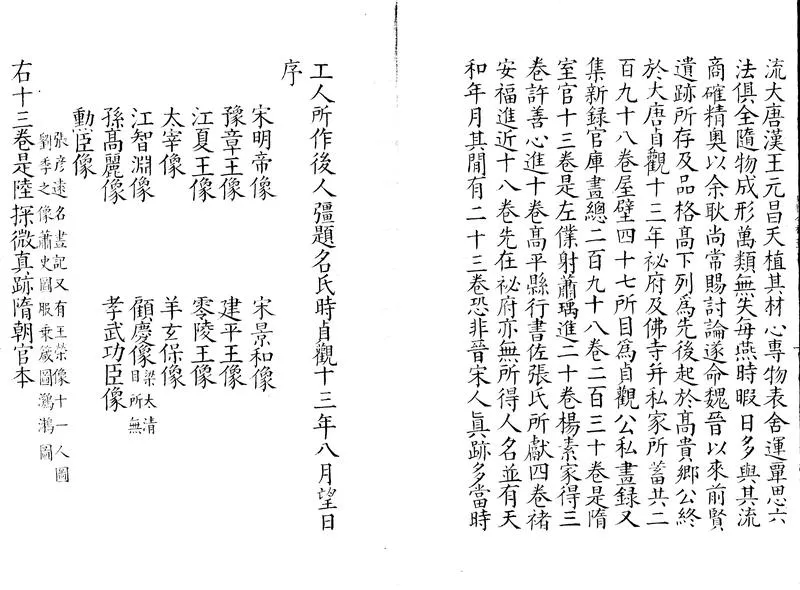 流大唐漢王元昌天植其材心專物表含運覃思六
法俱全隨物成形萬類無失每燕時暇日多與其流
商確精奧以余耿尚常賜討論遂命魏晉以來前賢
遺跡所存及品格高下列爲先後起於高貴鄉公終
於大唐貞觀十三年祕府及佛寺幷私家所蓄共二
百九十八卷屋壁四十七所目爲貞觀公私畫録又
集新録官庫畫總二百九十八卷二百三十卷是隋
室官十三卷是左僕射蕭瑀進二十卷楊素家得三
卷許善心進十卷高平縣行書佐張氏所獻四卷褚
安福進近十八卷先在祕府亦無所得人名並有天
和年月其間有二十三卷恐非晉宋人眞跡多當時
工人所作後人彊題名氏時貞觀十三年八月望日
序
宋明帝像 宋景和像
豫章王像 建平王像
江夏王像 零陵王像
太宰像 羊玄保像
江智淵像 顧慶像梁太清目所無
孫高麗像 孝武功臣像
勳臣像
張彦遠名畫記又有王榮像十一人圖
劉季之像蕭史圖服乘箴圖鸂鶒圖
右十三卷是陸探微真跡隋朝官本